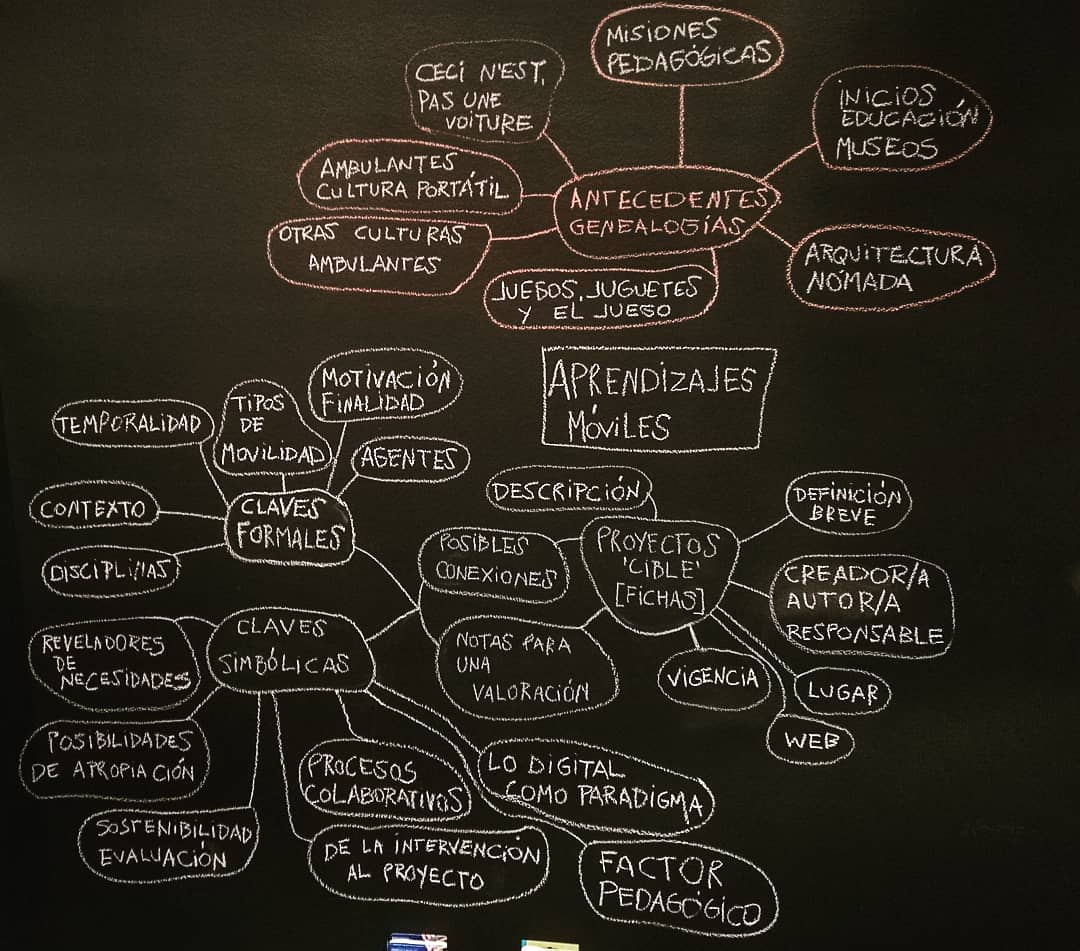 MISIONES
PEDAGÓGICAS
CECI N'EST,
PAS UNE
VOITURE
INICIOS
EDUCACIÓN
MUSEOS
AMBULANTES
CULTURA PORTÁTIL
ANTECEDENTES
GENEALOGÍAS
OTRAS CULTURAS
AMBULANTES
ARQUITECTURA
NÓMADA
JUEGOS, JUGUETES
Y EL JUEGO
APRENDIZAJES
MÓVILES
MOTIVACIÓN
FINALIDAD
TIPOS
DE
MOVILIDAD
TEMPORALIDAD
AGENTES
CONTEXTO
CLAVES
FORMALES
DISCIPLINAS
DESCRIPCIÓN
DEFINICIÓN
BREVE
POSIBLES
CONEXIONES
PROYECTOS
'CIBLE'
[FICHAS]
CREADOR/A
AUTOR/A
RESPONSABLE
NOTAS PARA
UNA
VALORACIÓN
VIGENCIA
LUGAR
WEB
CLAVES
SIMBÓLICAS
REVELADORES
DE
NECESIDADES
POSIBILIDADES
DE APROPIACIÓN
SOSTENIBILIDAD
EVALUACIÓN
PROCESOS
COLABORATIVOS
LO DIGITAL
COMO PARADIGMA
DE LA INTERVENCIÓN
AL PROYECTO
FACTOR
PEDAGÓGICO